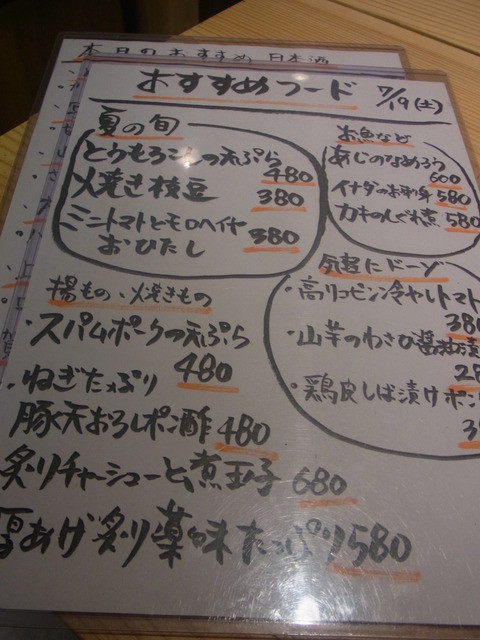 本日のおすすめ日本酒
おすすめフード 7/19(土)
夏の旬
とうもろこしの天ぷら
480
焼き枝豆 380
ミニトマトとモロヘイヤ
おひたし 380
お魚など
あじのなめろう
600
イナダのお刺身 580
カキのしぐれ煮 580
気軽にドーゾ
・高リコピン冷やしトマト
380
・山芋のわさび醤油漬
28
・鶏皮しば漬けポン
3
揚もの、焼きもの
・スパムポークの天ぷら
480
・ねぎたっぷり
豚天おろしポン酢 480
炙りチャーシューと煮玉子 680
厚あげ炙り薬味たっぷり 580